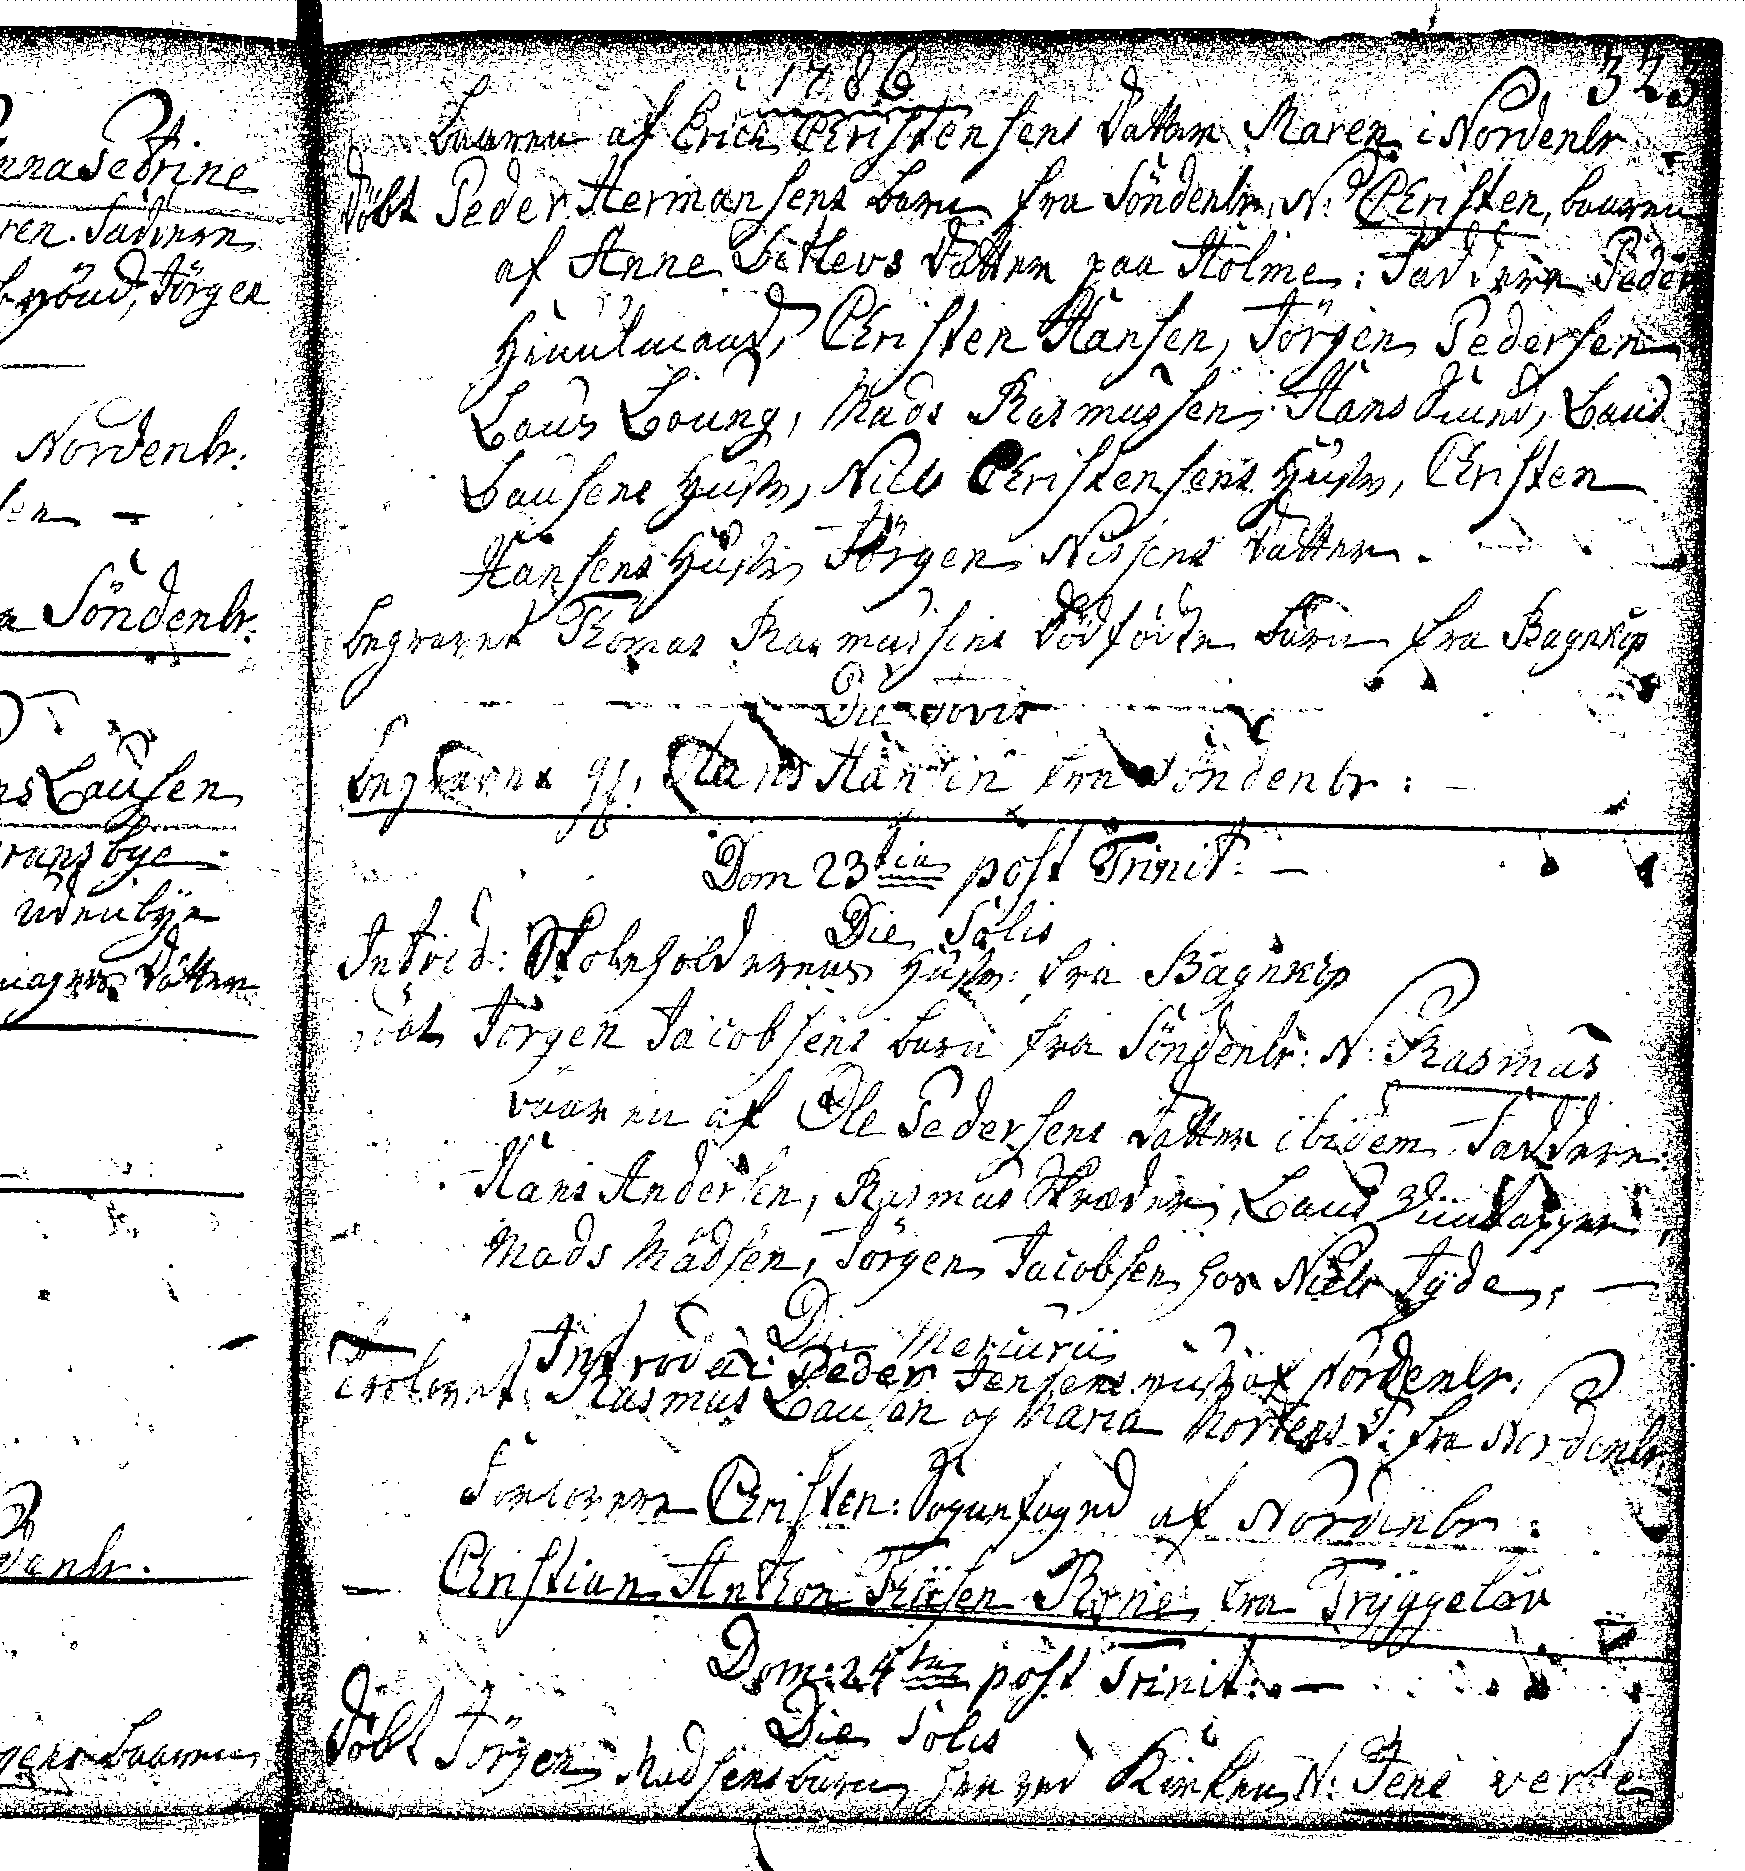 nna Petrine
ren. Faddere
Jørgen
Nordenbr:
sen -
a Söndenbr:
ns Lausen
Udenbye
Datter
denbr.
baaren
1786
323
baaren af Erich Christensens Datter Maren i Nordenbr
Döbt Peder Hermansens barn fra Söndenbr: N: Christen, baaren
af Anne Ditlevs Datter paa Holme: Faddere Peder
Christen Hansen, Jörgen Pedersen
Laus Loung, Mads Rasmussen, Hans Laus
Lausens Hustr, Niels Christensens Hustr, Christen
Hansens Hustr Jörgen Nissens Datter.
begravet Thomas Rasmussens Dödfödte barn fra Bagnkop
Die Jovis
begravet gl. Hans Hansen fra Söndenbr:
Dom 23tia post Trinit: -
Die Solis
Introd: Skoleholderens Hustr: fra Bagnkop
döbt Jörgen Jacobsens barn fra Söndenbr: N: Rasmus
baaren af Ole Pedersens Datter ibidem. Faddere
Hans Andersen, Rasmus Skræder, Laus
Mads Madsen, Jörgen Jacobsen hos Niels Tyde, -
Die Mercurii
Introd: Peder Jensens Hust: af Nordenbr:
Trolovet: Rasmus Lausen og Maria Mortens D: fra Nordenbr
Forlovere Christen Sognefoged af Nordenbr:
- Christian Anthon Thiesen Röne fra Tryggelöv
Dom: 24ta post Trinit: -
Die Solis
Döbt Jörgen Madsens barn her ved Kirken N: Jens